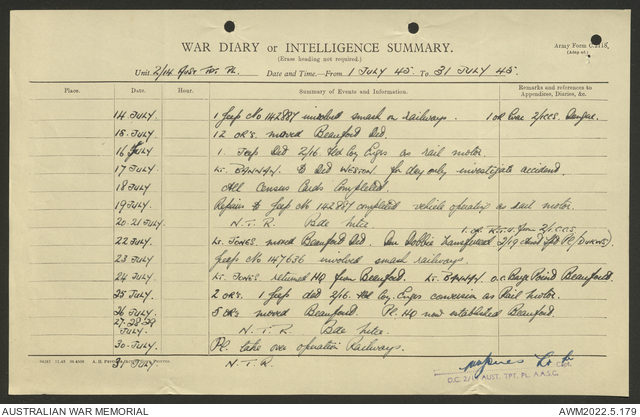 WAR DIARY or INTELLIGENCE SUMMARY.
(Erase heading not required.)
Army Form C.2118,
Unit 2/14 Aust Tpt Pl. Date and Time—From 1 JULY 45 To 31 JULY 45.
Place. Date. Hour. Summary of Events and Information. Remarks and references to Appendices, Diaries, &c.
14 JULY 1 Jeep No 142887 involved smash on railways. 1 OR Evac 2/1 CCS. Dengue
15. JULY. 12 ORs moved Beauford Det.
16 July 1 Jeep Det 2/16 Fld Coy Engrs as rail motor.
17 JULY Lt. to Det WESTON for day only investigate accident.
18 JULY All Census Cards Completed.
19 JULY Repairs to Jeep No 142887 completed vehicle operates as rail motor.
20-21 JULY N.T.R. Bde
1. OR R.T.U. from 2/1 CCS
22 JULY. Lt. JONES. moved Beauford Det. One transferred 2/19 Pl (DUKWS)
23 JULY Jeep No 147636 involved smash railways.
24 JULY Lt. JONES returned HQ from Beauford. Lt. O.C. Barge Point Beauford.
25 JULY 2 ORs. 1 Jeep det 2/16. Fld Coy Engrs conversion as Rail Motor.
26 JULY. 5 ORs moved Beauford. Pl. HQ now established Beauford.
27-28-29 JULY. N.T.R. Bde
30-JULY. Pl. take over operation Railways.
31 JULY. N.T.R.
Capt
O.C. 2/14 AUST. TPT. PL. A.A.S.C.
AUSTRALIAN WAR MEMORIAL
AWM2022.5.179